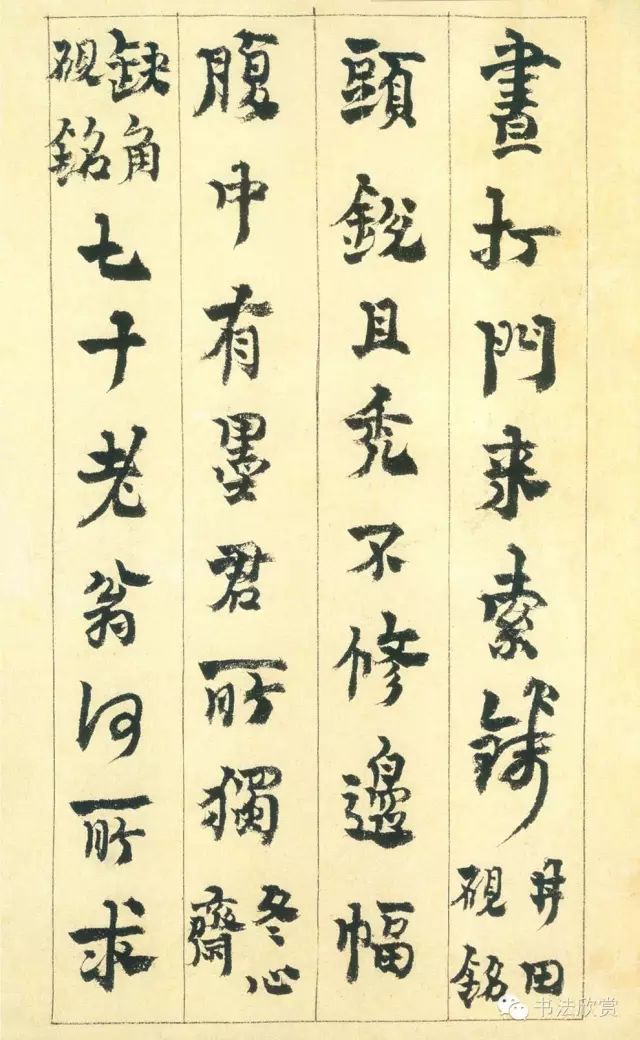 晝打門来索錢井田硯銘
頭鋭且秃不修邊幅
腹中有墨君所獨冬心齋
缺角硯銘七十老翁何所求
书法欣赏